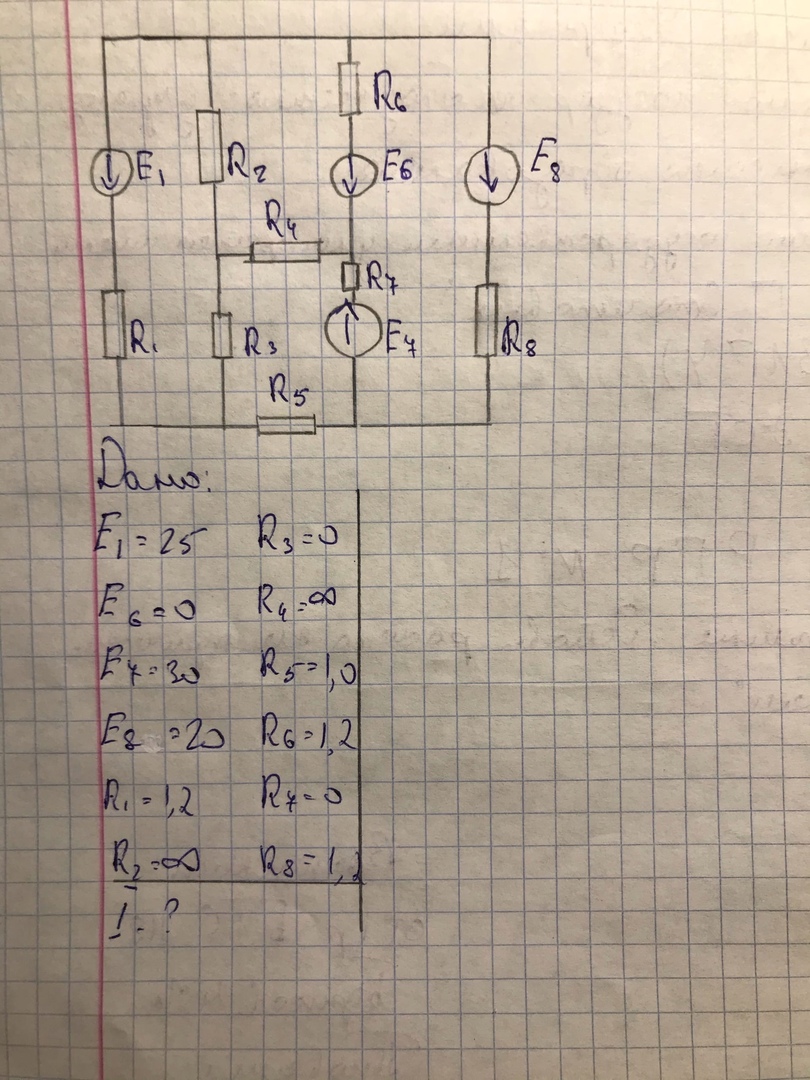 R6
E1 R2 E6 E8
R4
R7
R1 R3 E7 R8
R5
Дано:
E1 = 25 R3 = 0
E6 = 0 R4 = ∞
E7 = 30 R5 = 1,0
E8 = 20 R6 = 1,2
R1 = 1,2 R7 = 0
R2 = ∞ R8 = 1,2
I - ?